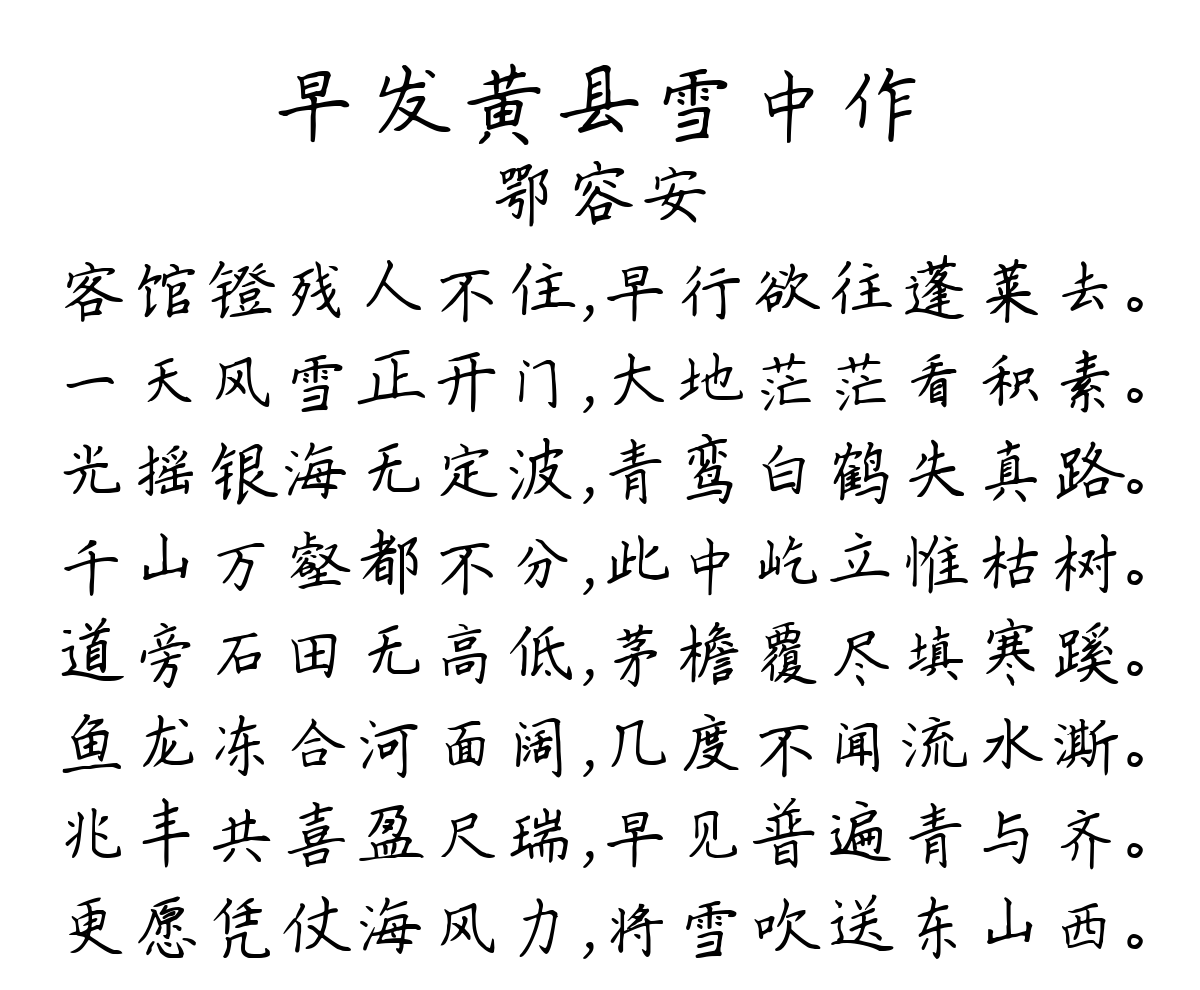 早发黄县雪中作
鄂容安
客馆镫残人不住,早行欲往蓬莱去。
一天风雪正开门,大地茫茫看积素。
光摇银海无定波,青鸾白鹤失真路。
千山万壑都不分,此中屹立惟枯树。
道旁石田无高低,茅檐覆尽填寒蹊。
鱼龙冻合河面阔,几度不闻流水澌。
兆丰共喜盈尺瑞,早见普遍青与齐。
更愿凭仗海风力,将雪吹送东山西。